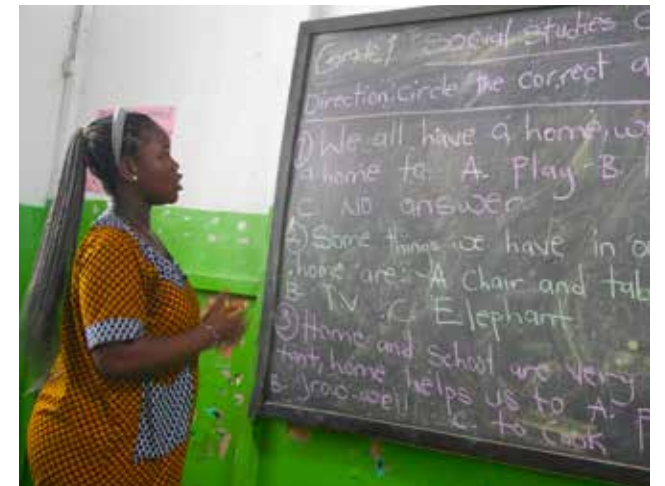 Grade 1 Social Studies C
Direction: Circle the correct a
1) We all have a home, we
a home to A. Play B.
C. NO answer
2) Some things we have in o
home are:- A Chair and tab
B. TV C. Elephant
3) Home and School are very
tant, home helps us to A.
B. grow well C. to cook